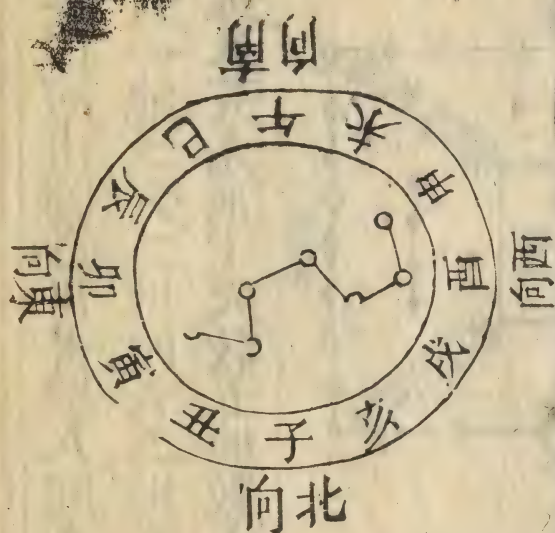 向南
向東
向西
向北
子
丑
寅
卯
辰
巳
午
未
申
酉
戌
亥